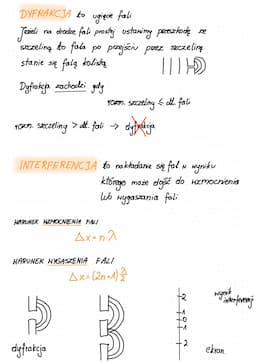 DYFRAKCJA to ugięcie fali
Jeżeli na drodze fali prostej ustawimy przeszkodę ze
szczeliną to fala po przejściu przez szczelinę
stanie się falą kolistą
Dyfrakcja zachodzi gdy
rozm. szczeliny ≤ dł. fali
rozm. szczeliny > dł. fali → dyfrakcja
INTERFERENCJA to nakładanie się fal w wyniku
którego może dojść do wzmocnienia
lub wygaszania fali
WARUNEK WZMOCNIENIA FALI
Δx = n·λ
WARUNEK WYGASZENIA FALI
Δx = (2n+1) λ/2
2
wynik
interferencji
1
0
1
2
dyfrakcja
ekran